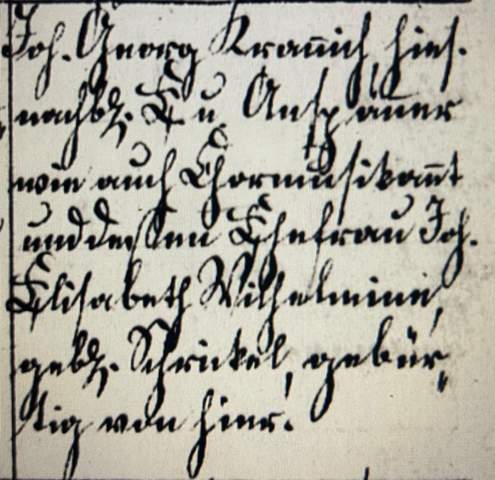 Joh. Georg Kranich, hies.
nachb. E. u. Anspänner
wie auch Chormusikant
und dessen Ehefrau Joh.
Elisabeth Wilhelmine,
geb. Schrickel, gebür-
tig von hier.